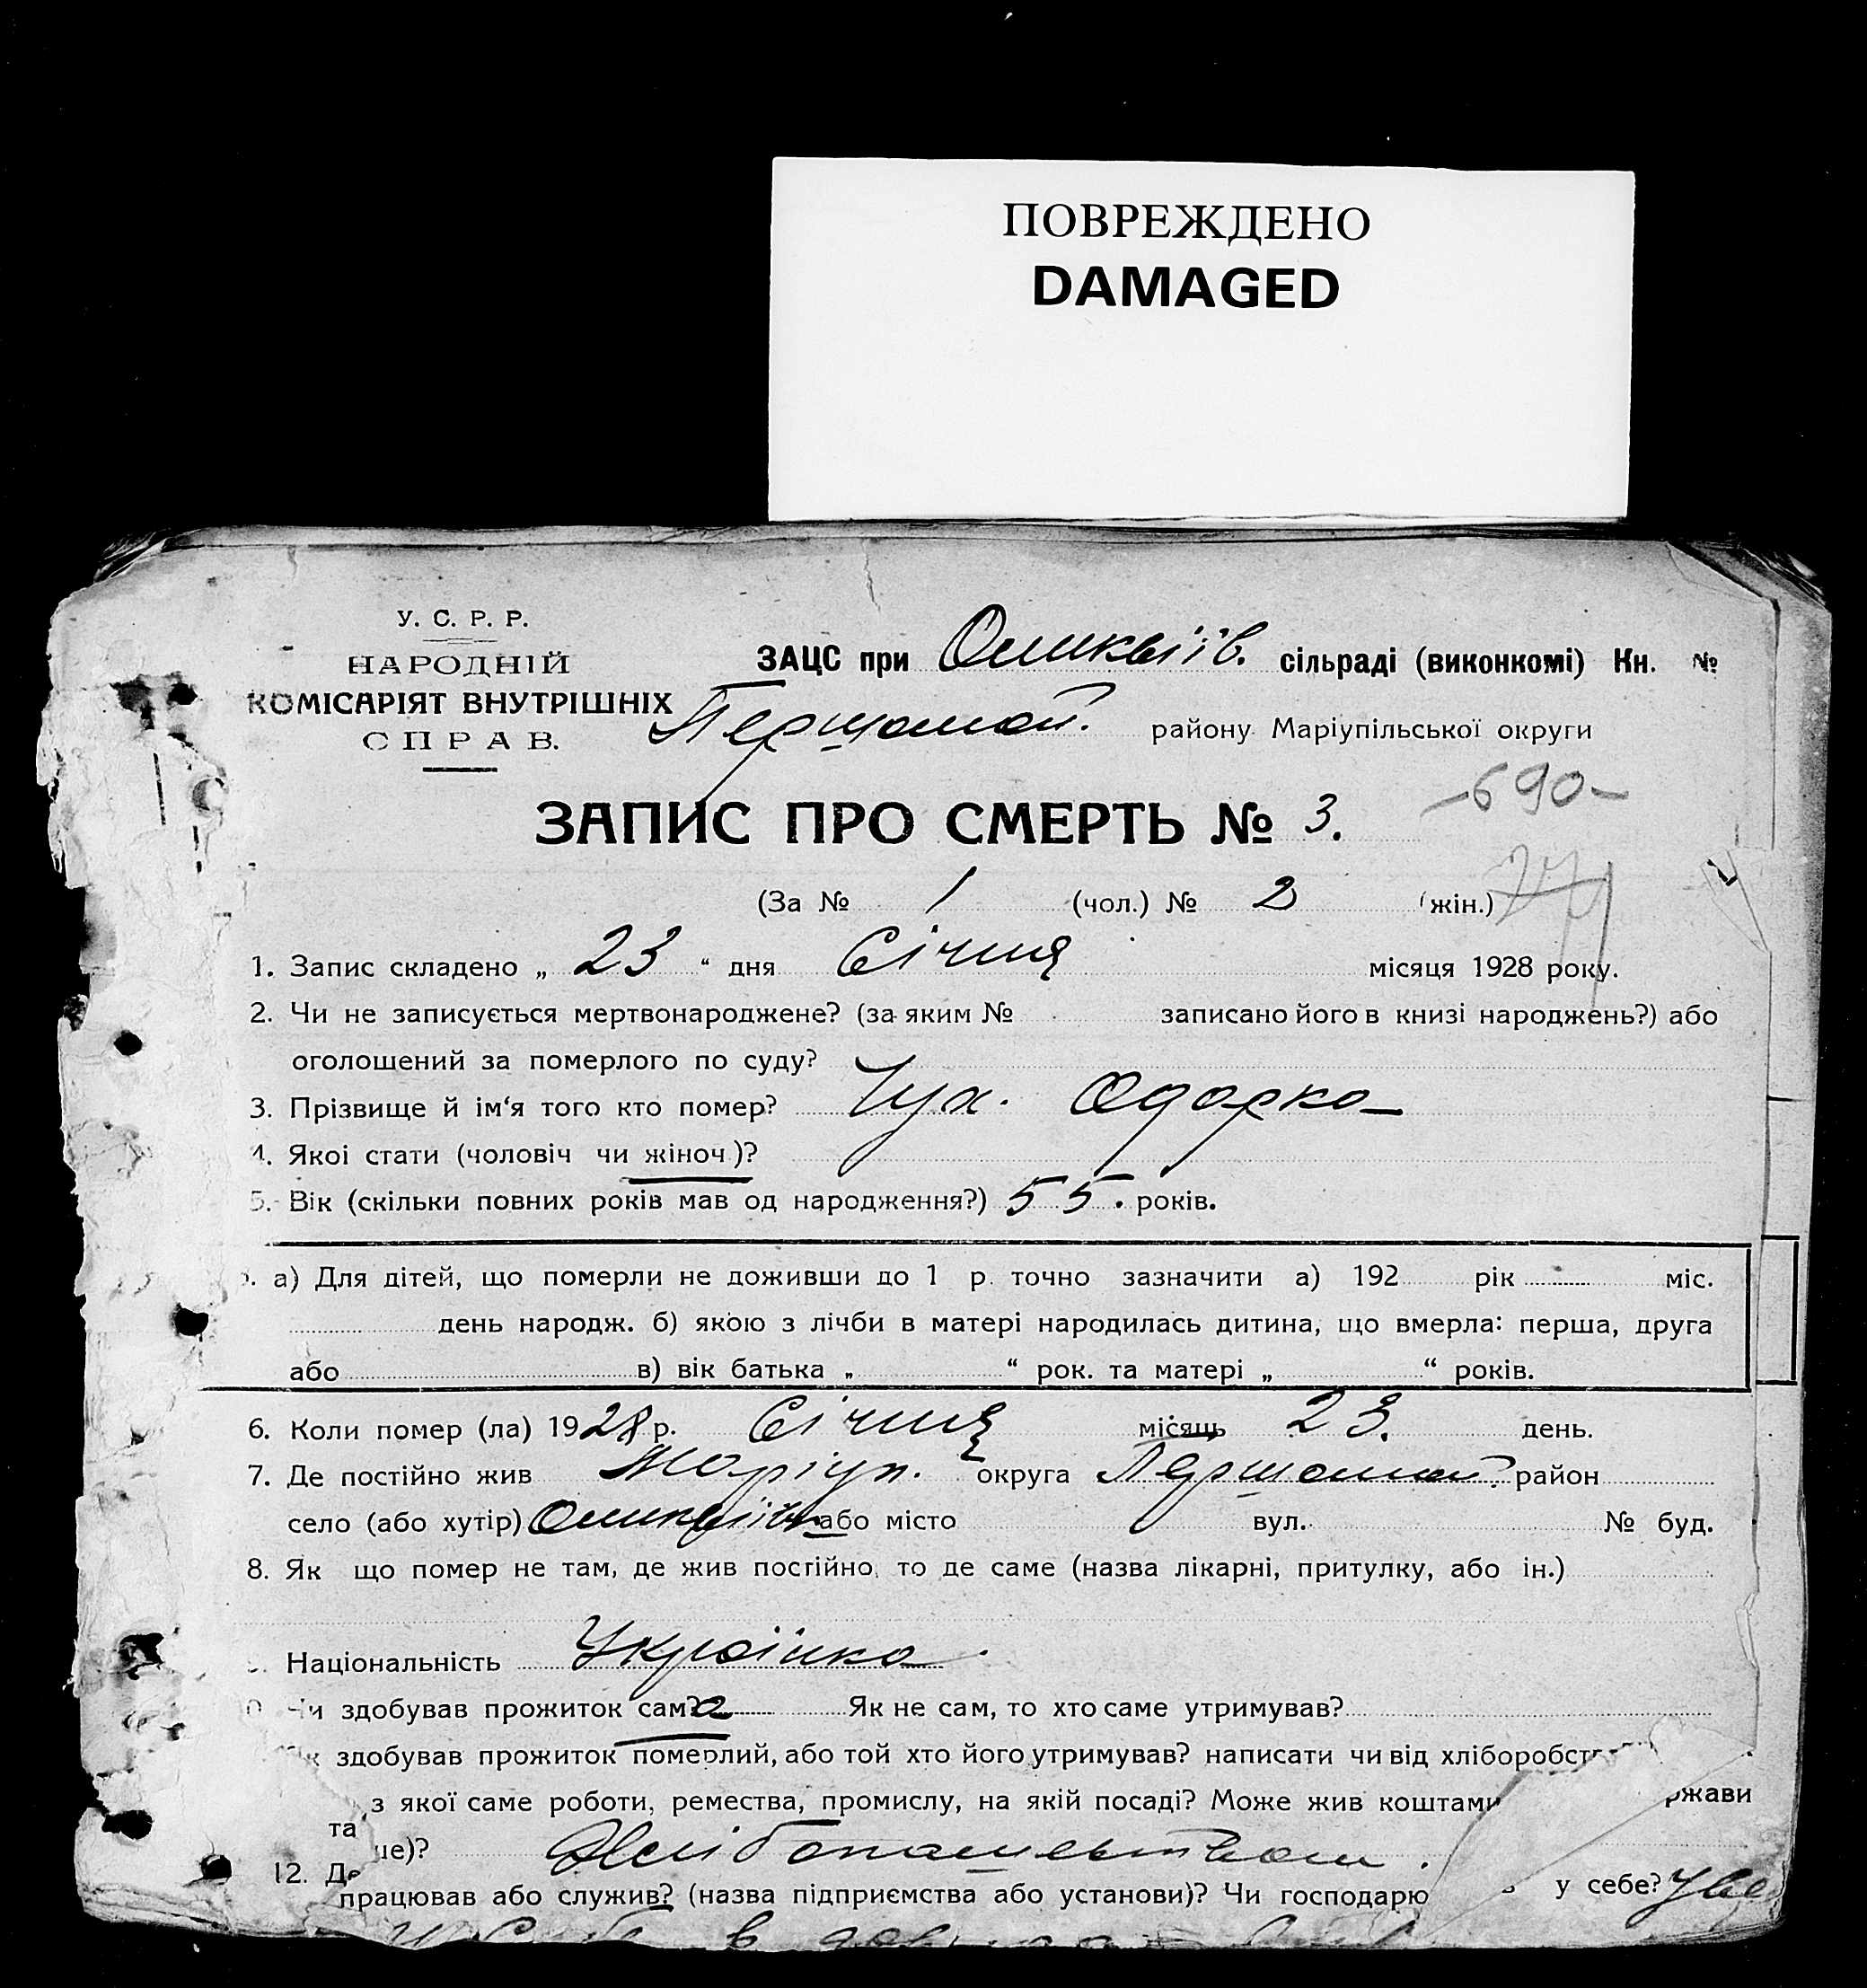 ПОВРЕЖДЕНО
DAMAGED
У. С. Р. Р.
НАРОДНІЙ
КОМІСАРІЯТ ВНУТРІШНІХ
СПРАВ.
ЗАЦС при сільраді (виконкомі) Кн. №
Першомай. району Маріупільської округи
ЗАПИС ПРО СМЕРТЬ № 3.
-690-
(За № 1 (чол.) № 2 (жін.)
1. Запис складено „ 23 “ дня Січня місяця 1928 року.
2. Чи не записується мертвонароджене? (за яким № записано його в книзі народжень?) або
оголошений за померлого по суду?
3. Прізвище й ім‘я того кто помер? Чух. Одарка
4. Якоі стати (чоловіч чи жіноч)?
5. Вік (скільки повних років мав од народження?) 55. років.
а) Для дітей, що померли не доживши до 1 р. точно зазначити а) 192 рік міс.
день народж. б) якою з лічби в матері народилась дитина, що вмерла: перша, друга
або в) вік батька „ “ рок. та матері „ “ років.
6. Коли помер (ла) 1928 р. Січня місяць 23. день.
7. Де постійно жив Маріуп. округа Першомай. район
село (або хутір) або місто вул. № буд.
8. Як що помер не там, де жив постійно, то де саме (назва лікарні, притулку, або ін.)
Національність Українка
Чи здобував прожиток сам?а Як не сам, то хто саме утримував?
здобував прожиток померлий, або той хто його утримував? написати чи від хліборобст
та з якої саме роботи, ремества, промислу, на якій посаді? Може жив коштами ржави
ще)? Хлібопашеством.
12. Де працював або служив? (назва підприємства або установи)? Чи господарю у себе?